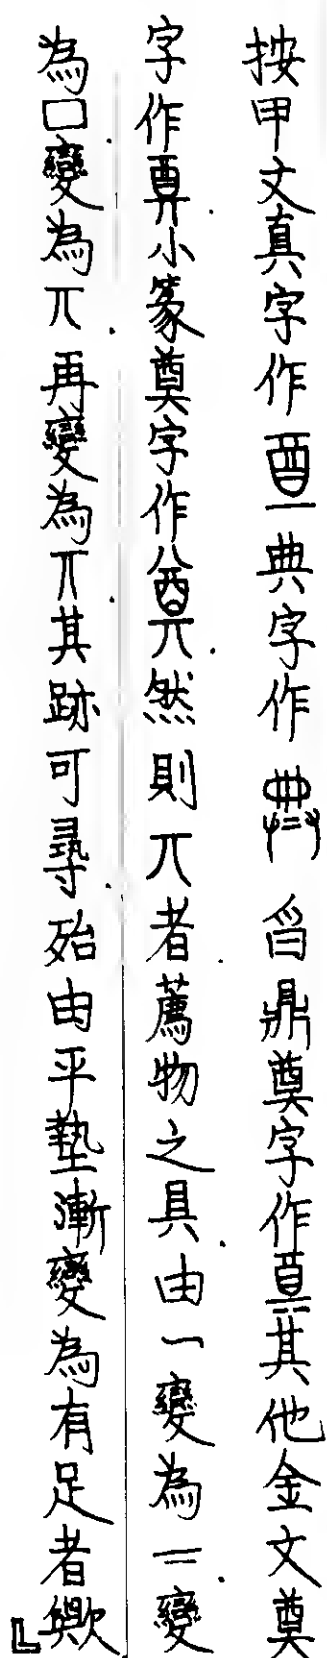 按甲文真字作一典字作臽鼎奠字作其他金文奠
字作小篆奠字作然則丌者薦物之具由一變為二變
為口變為丌再變為丌其跡可尋殆由平墊漸變為有足者歟』